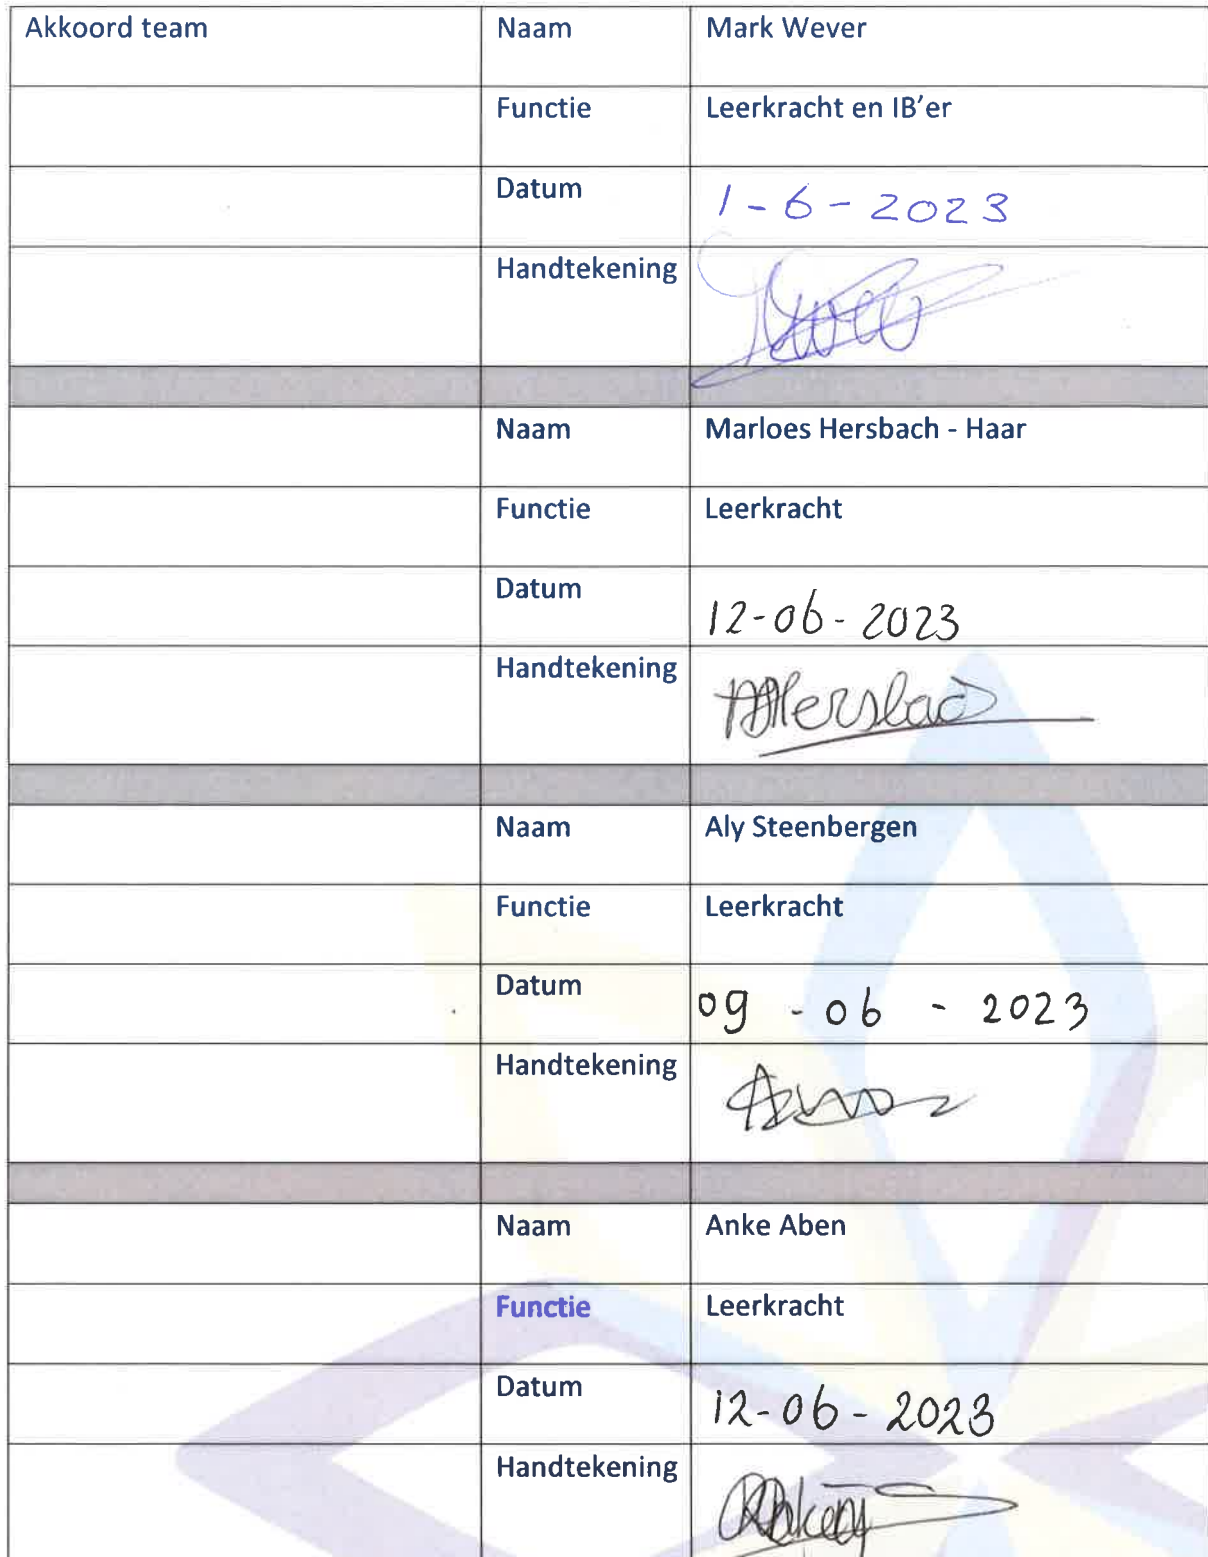 Akkoord team Naam Mark Wever
Functie Leerkracht en IB'er
Datum 1-6-2023
Handtekening
Naam Marloes Hersbach - Haar
Functie Leerkracht
Datum 12-06-2023
Handtekening
Naam Aly Steenbergen
Functie Leerkracht
Datum 09-06-2023
Handtekening
Naam Anke Aben
Functie Leerkracht
Datum 12-06-2023
Handtekening